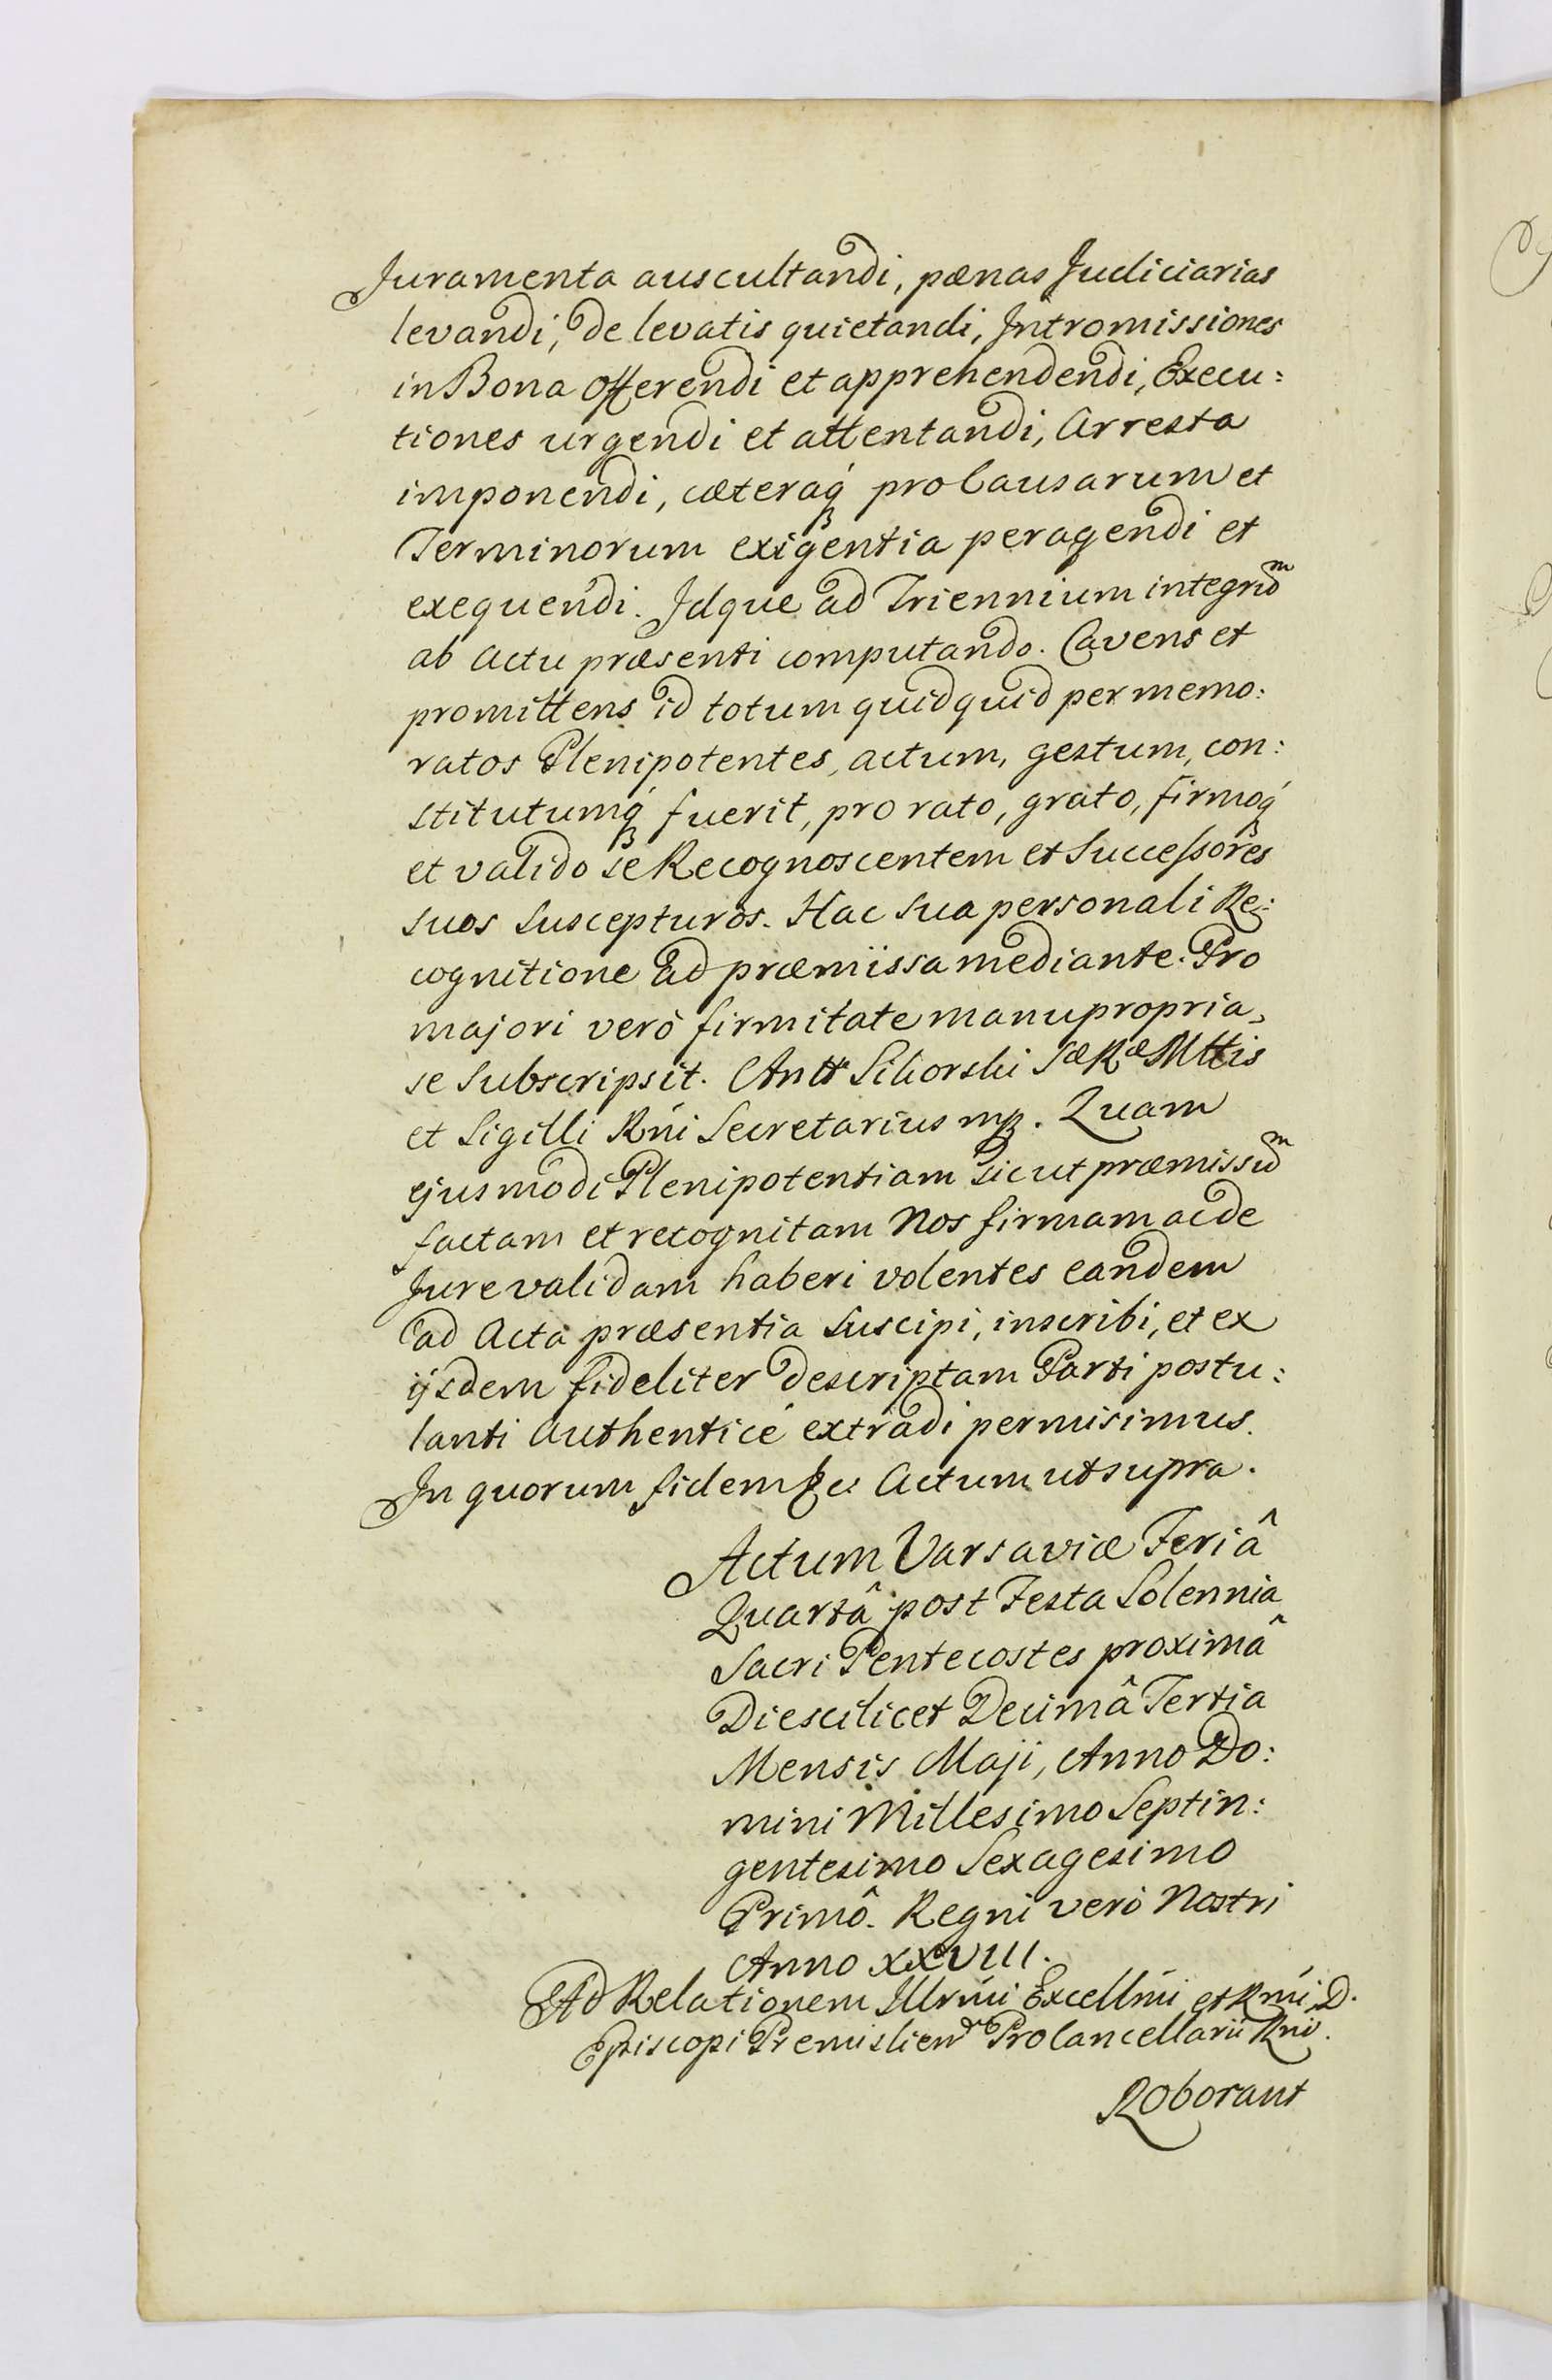 Juramenta auscultandi, pænas Judiciarias
levandi, de levatis quietandi, Intromissiones
in Bona offerendi et apprehendendi, Execu:
tiones urgendi et attentandi, Arresta
imponendi, cæteraq́ pro Causarum et
Terminorum exigentia peragendi et
exequendi. Idque ad Triennium integrum
ab actu præsenti computando. Cavens et
promittens id totum quidquid per memo:
ratos Plenipotentes, actum, gestum, con:
stitutumq́ fuerit, pro rato, grato, firmoq́
et valido se Recognoscentem et Successores
suos suscepturos. Hac sua personali Re:
cognitione ad præmissa mediante. Pro
majori verò firmitate manu propria
se subscripsit. Antt Sikorski Sæ Ræ Mttis
et Sigilli Rńi Secretarius mp. Quam
ejusmodi Plenipotentiam sicut præmissum
factam et recognitam Nos firmam ac de
Jure validam haberi volentes eandem
ad Acta præsentia suscipi, inscribi, et ex
ijsdem fideliter descriptam Parti postu:
lanti Authenticé extradi permisimus.
In quorum fidem &c Actum ut supra.
Actum Varsaviæ Feriâ
Quartâ post Festa Solennia
Sacri Pentecostes proximâ
Die scilicet Decimâ Tertia
Mensis Maji, Anno Do:
mini Millesimo Septin:
gentesimo Sexagesimo
Primô. Regni verò Nostri
Anno XXVIII.
Ad Relationem Illrḿi Excellḿi et Rmi D.
Episcopi Premislien Procancellarii Rni.
Roborant